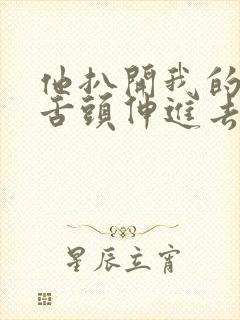 他扒開我的
舌頭伸進去
星辰立宵